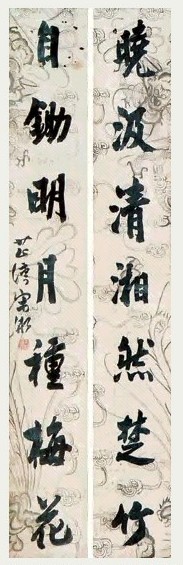 曉汲清湘然楚竹
自鋤明月種梅花